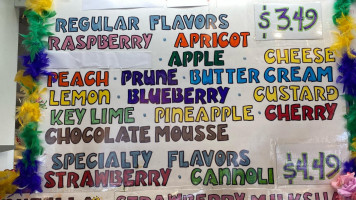 REGULAR FLAVORS $3.49
RASPBERRY · APRICOT
· APPLE · CHEESE
PEACH · PRUNE · BUTTER CREAM
LEMON · BLUEBERRY · CUSTARD
KEY LIME · PINEAPPLE · CHERRY
CHOCOLATE MOUSSE
SPECIALTY FLAVORS $4.49
STRAWBERRY · CANNOLI
STRAWBERRY MILKSHA